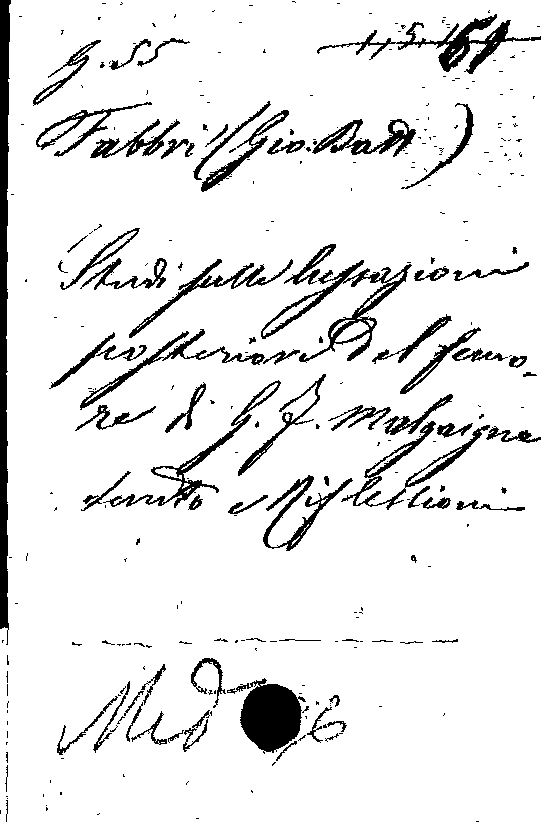 G. 55 61
Fabbri (Gio: Batt)
Studi sulle lussazioni
posteriori del femo-
re di G. F. Malgaigne
sunto e Riflessioni
Med